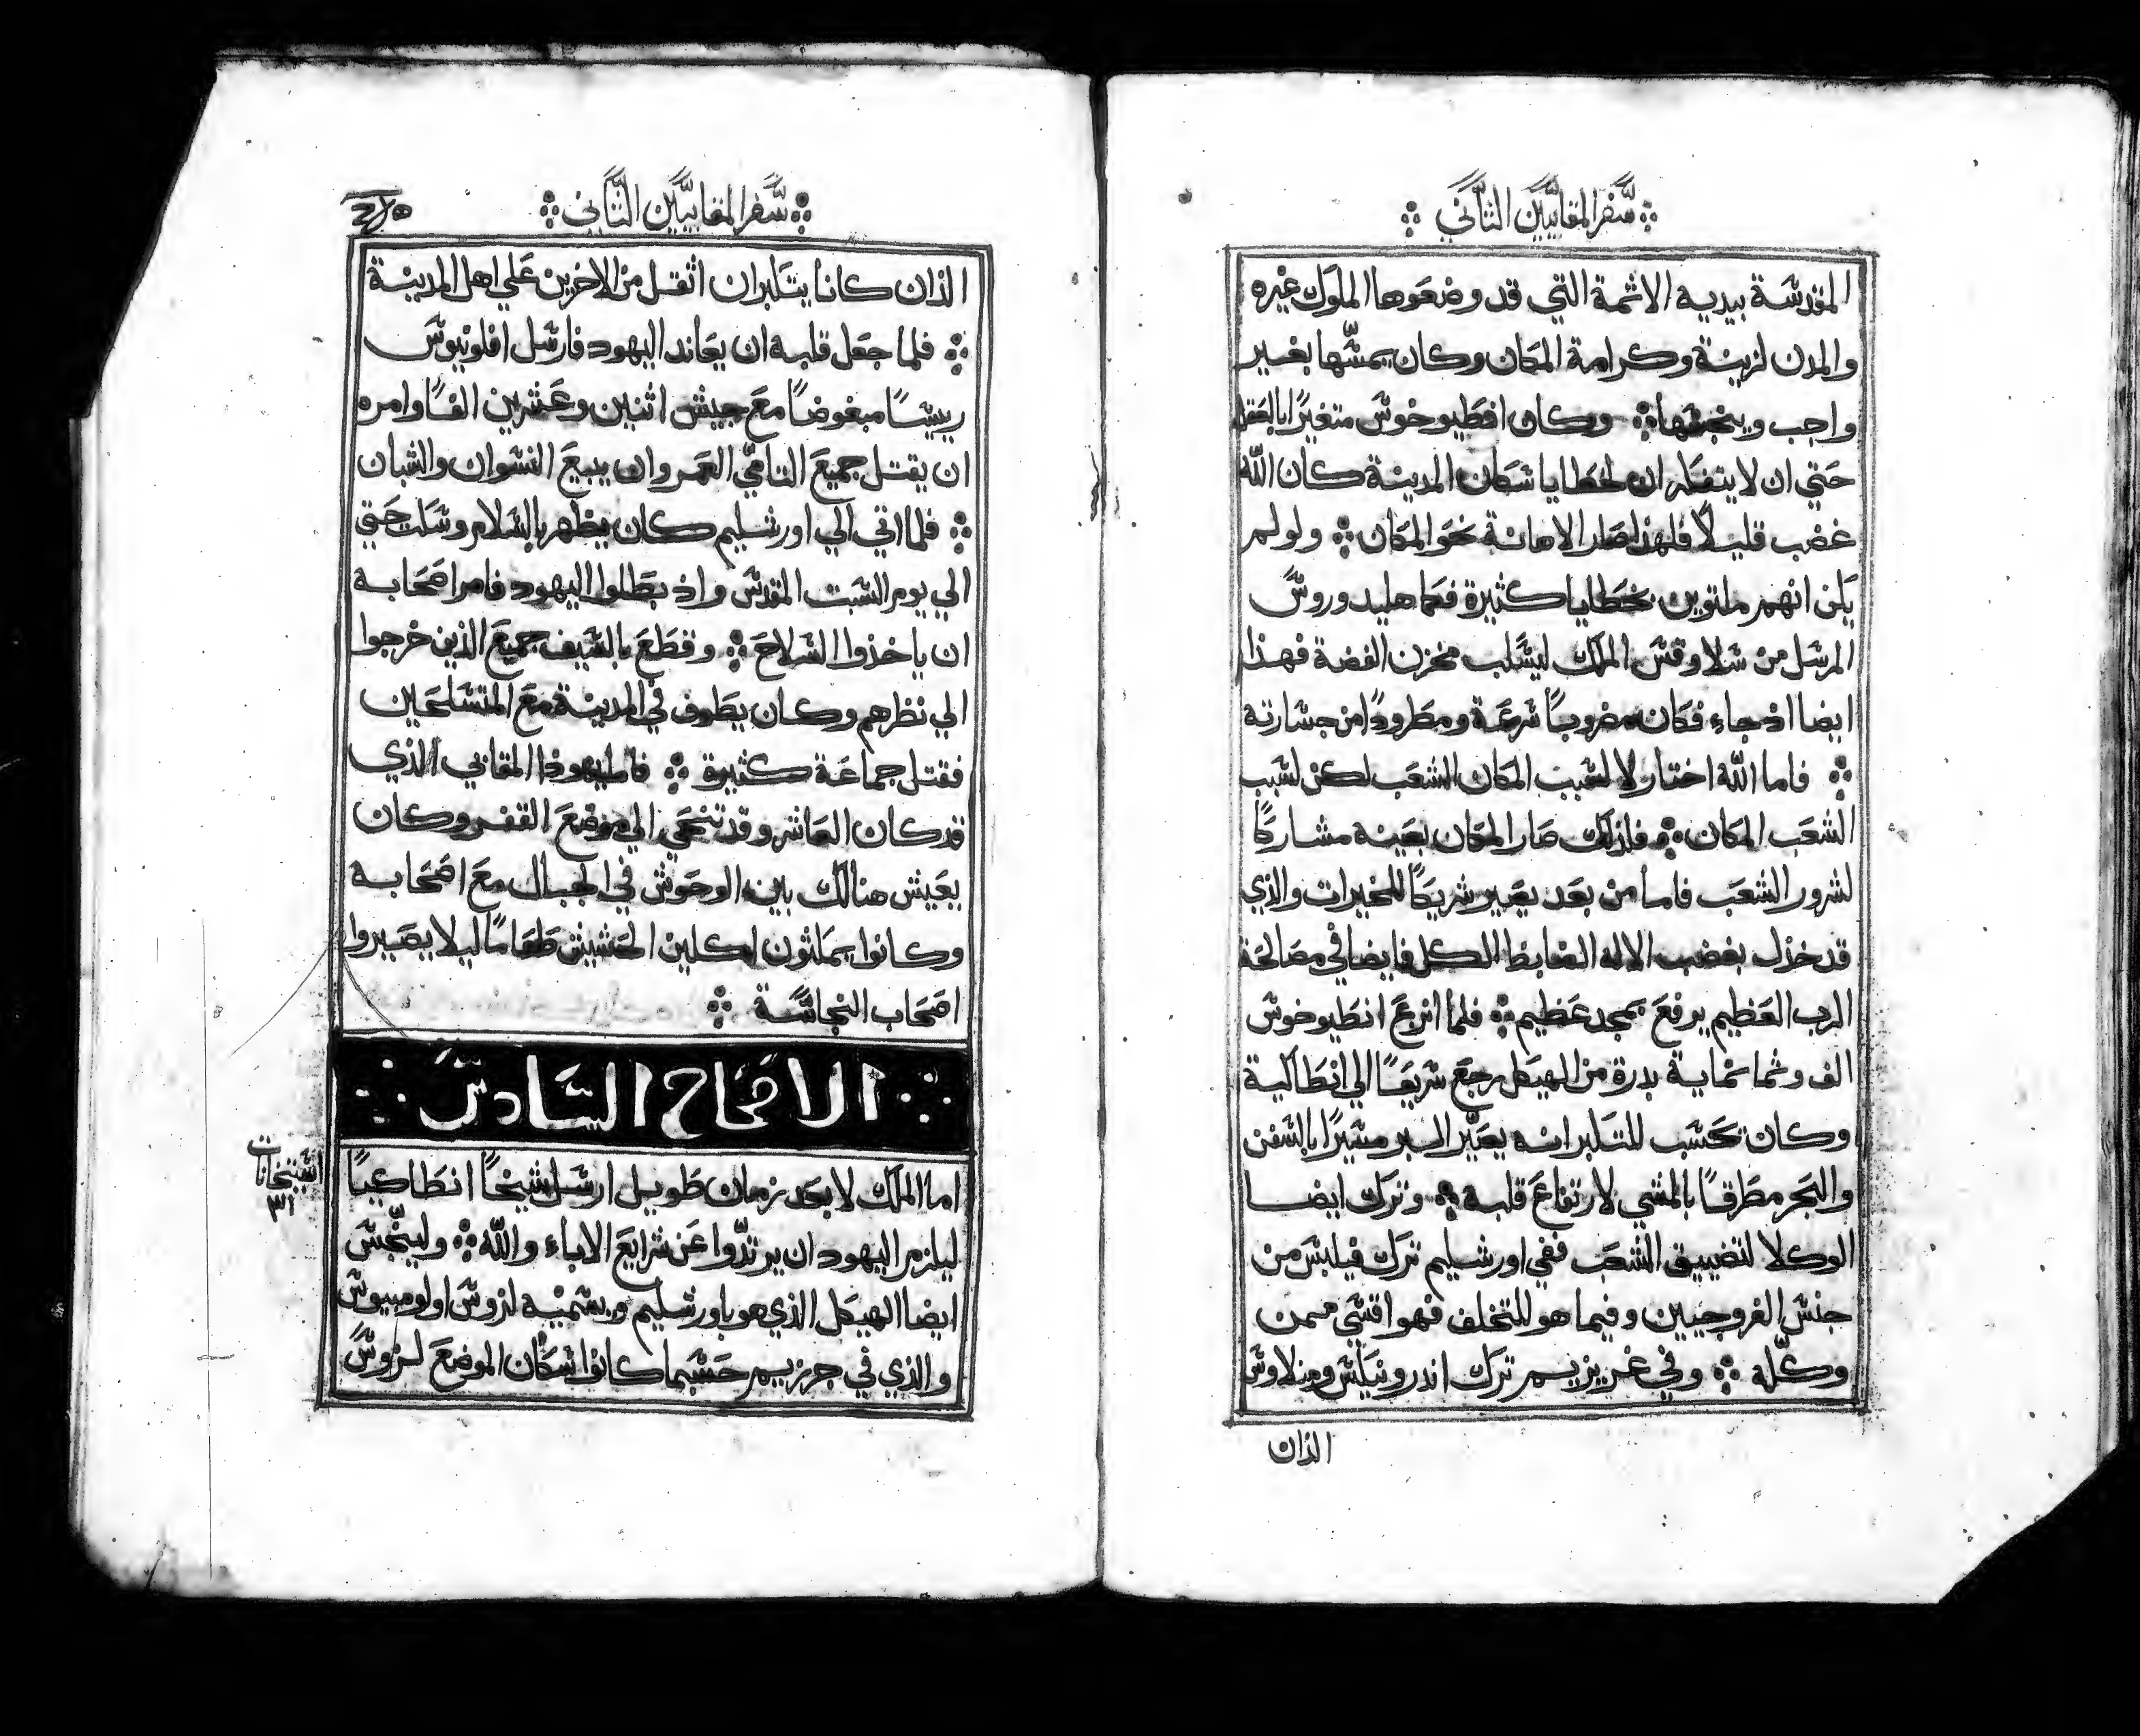 سفر المقابيين الثاني
المقدسة بيديه الاثمة التي قد وضعوها الملوك غيره
والمدن لزينة وكرامة المكان وكان يمسها بغير
واجب وينجسها وكان انطيوخوس متغيرًا بالعقل
حتي ان لا يتفكر ان لخطايا سكان المدينة كان الله
غضب قليلاً فلهذا صار الاهانة نحو المكان ولو لم
يكن انهم ملتوين بخطايا كثيرة فكما هليدوروس
المرسل من سلاوقس الملك ليسلب مخزن الفضة فهذا
ايضا اذ جاء فكان مضروباً سرعة ومطرودًا من جسارته
فاما الله اختار لا لسبب المكان الشعب لكن لسبب
الشعب المكان فلذلك صار المكان بعينه مشاركًا
لشرور الشعب فاما من بعد يصير شريكًا للخيرات والذي
قد خذل بغضب الاله الضابط الكل فايضا في مصالحة
الرب العظيم يرفع بمجد عظيم فلما انزع انطيوخوس
الف وثمانماية بدرة من الهيكل رجع سريعًا الي انطاكية
وكان تحسب للتكبر انه يصير البر مسيرًا بالسفن
والبحر مطرقًا بالمشي لارتفاع قلبه وترك ايضا
الوكلا لتضييق الشعب ففي اورشليم ترك فيلبس من
جنس الفروجيين وفيما هو للتخلف فهو اقسي ممن
وكله وفي غريزيم ترك اندرونيكس ومنلاوس
الذان
سفر المقابيين الثاني
الذان كانا يتكبران اثقل من الاخرين علي اهل المدينة
فلما جعل قلبه ان يعاند اليهود فارسل افلونيوس
رييسًا مبغوضًا مع جيش اثنين وعشرين الفًا وامره
ان يقتل جميع التامي العمر وان يبيع النسوان والشبان
فلما اتي الي اورشليم كان يظهر بالسلام وسكت حتي
الي يوم السبت المقدس واذ بطلوا اليهود فامر اصحابه
ان ياخذوا السلاح وقطع بالسيف جميع الذين خرجوا
الي نظرهم وكان يطوف في المدينة مع المتسلحين
فقتل جماعة كثيرة فاما يهوذا المقابي الذي
قد كان العاشر وقد تنحي الي موضع القفر وكان
يعيش هنالك بين الوحوش في الجبال مع اصحابه
وكانوا يمكثون اكلين الحشيش طعامًا ليلا يصيروا
اصحاب النجاسة
الاصحاح السادس
اما الملك لا بعد زمان طويل ارسل شيخاً انطاكياً
ليلزم اليهود ان يرتدّوا عن شرايع الاباء والله ولينجّس
ايضا الهيكل الذي هو باورشليم ويسميه لزوس اولومبيوس
والذي في جرزيم حسبما كانوا سكان الموضع لزوس